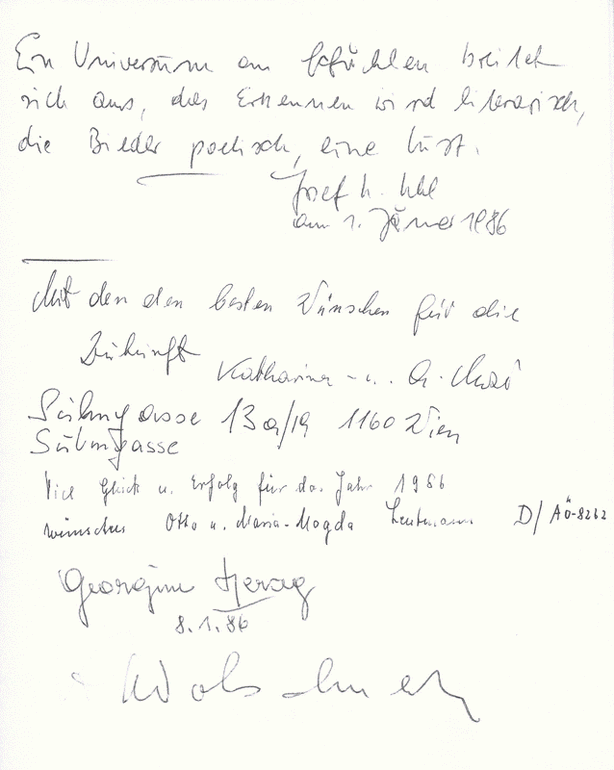 Ein Universum an Gefühlen breitet
sich aus, das Erkennen wird literarisch,
die Bilder poetisch, eine Lust.
Josef K. Uhl
am 1. Jänner 1986
Mit den den besten Wünschen für die
Zukunft Katharina - u. A.
13a/19 1160 Wien
Viel Glück u. Erfolg für das Jahr 1986
wünschen Otto u. Maria-Magda D/AÖ-8262
Georgine Herzog
8.1.86